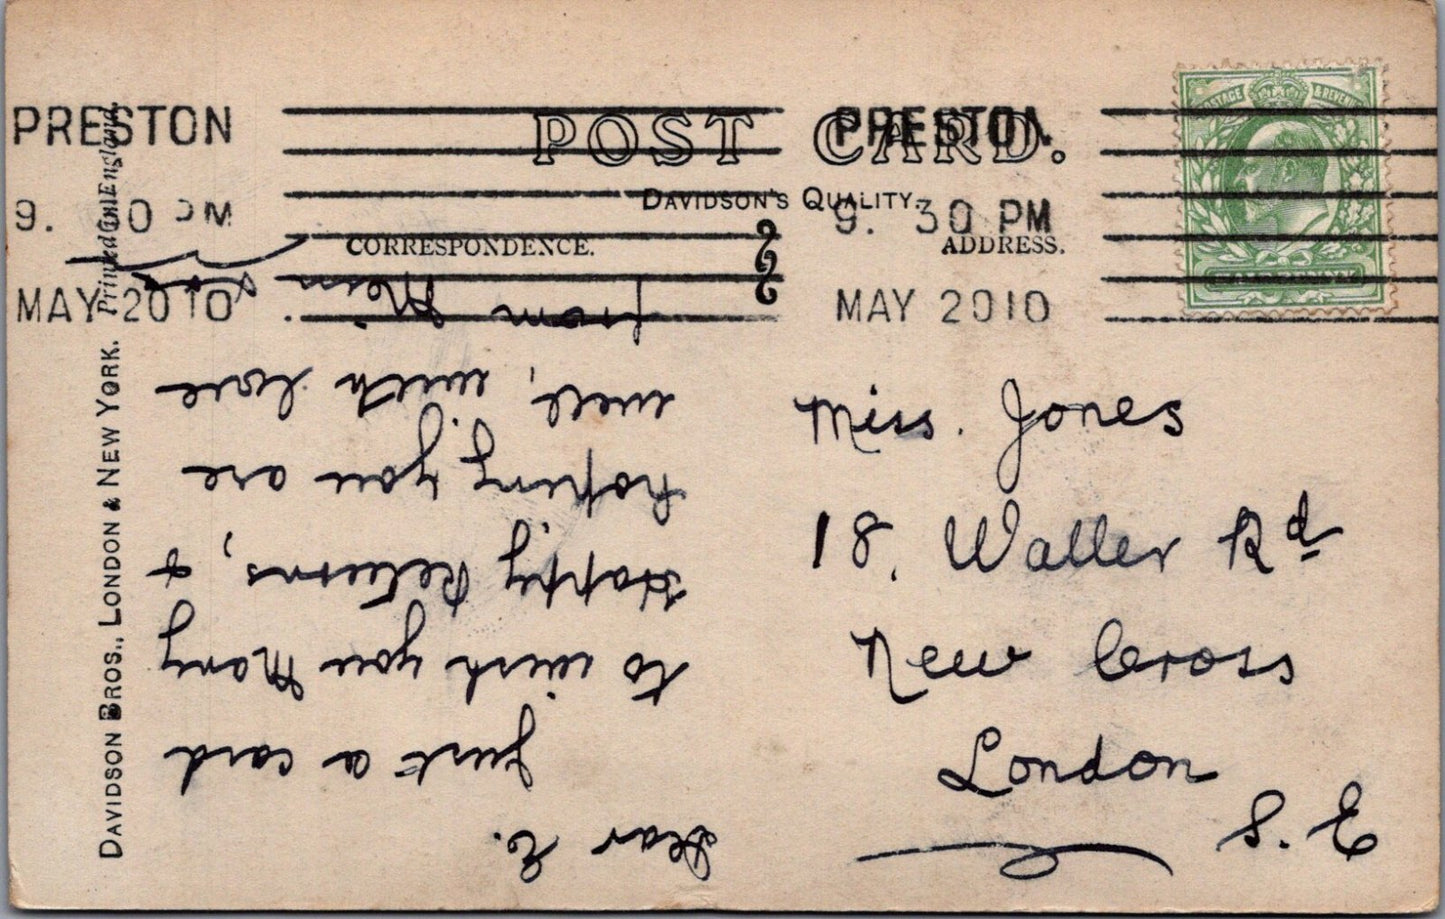 PRESTON
9. 30 PM
MAY 20 10
PRESTON
9. 30 PM
MAY 20 10
POST CARD.
DAVIDSON'S QUALITY.
CORRESPONDENCE.
ADDRESS.
POSTAGE & REVENUE
HALFPENNY
DAVIDSON BROS., LONDON & NEW YORK. Printed in England.
Dear E.
Just a card
to wish you Many
Happy Returns, &
hoping you are
well, with love
from
Miss. Jones
18, Waller Rd
New Cross
London
S. E